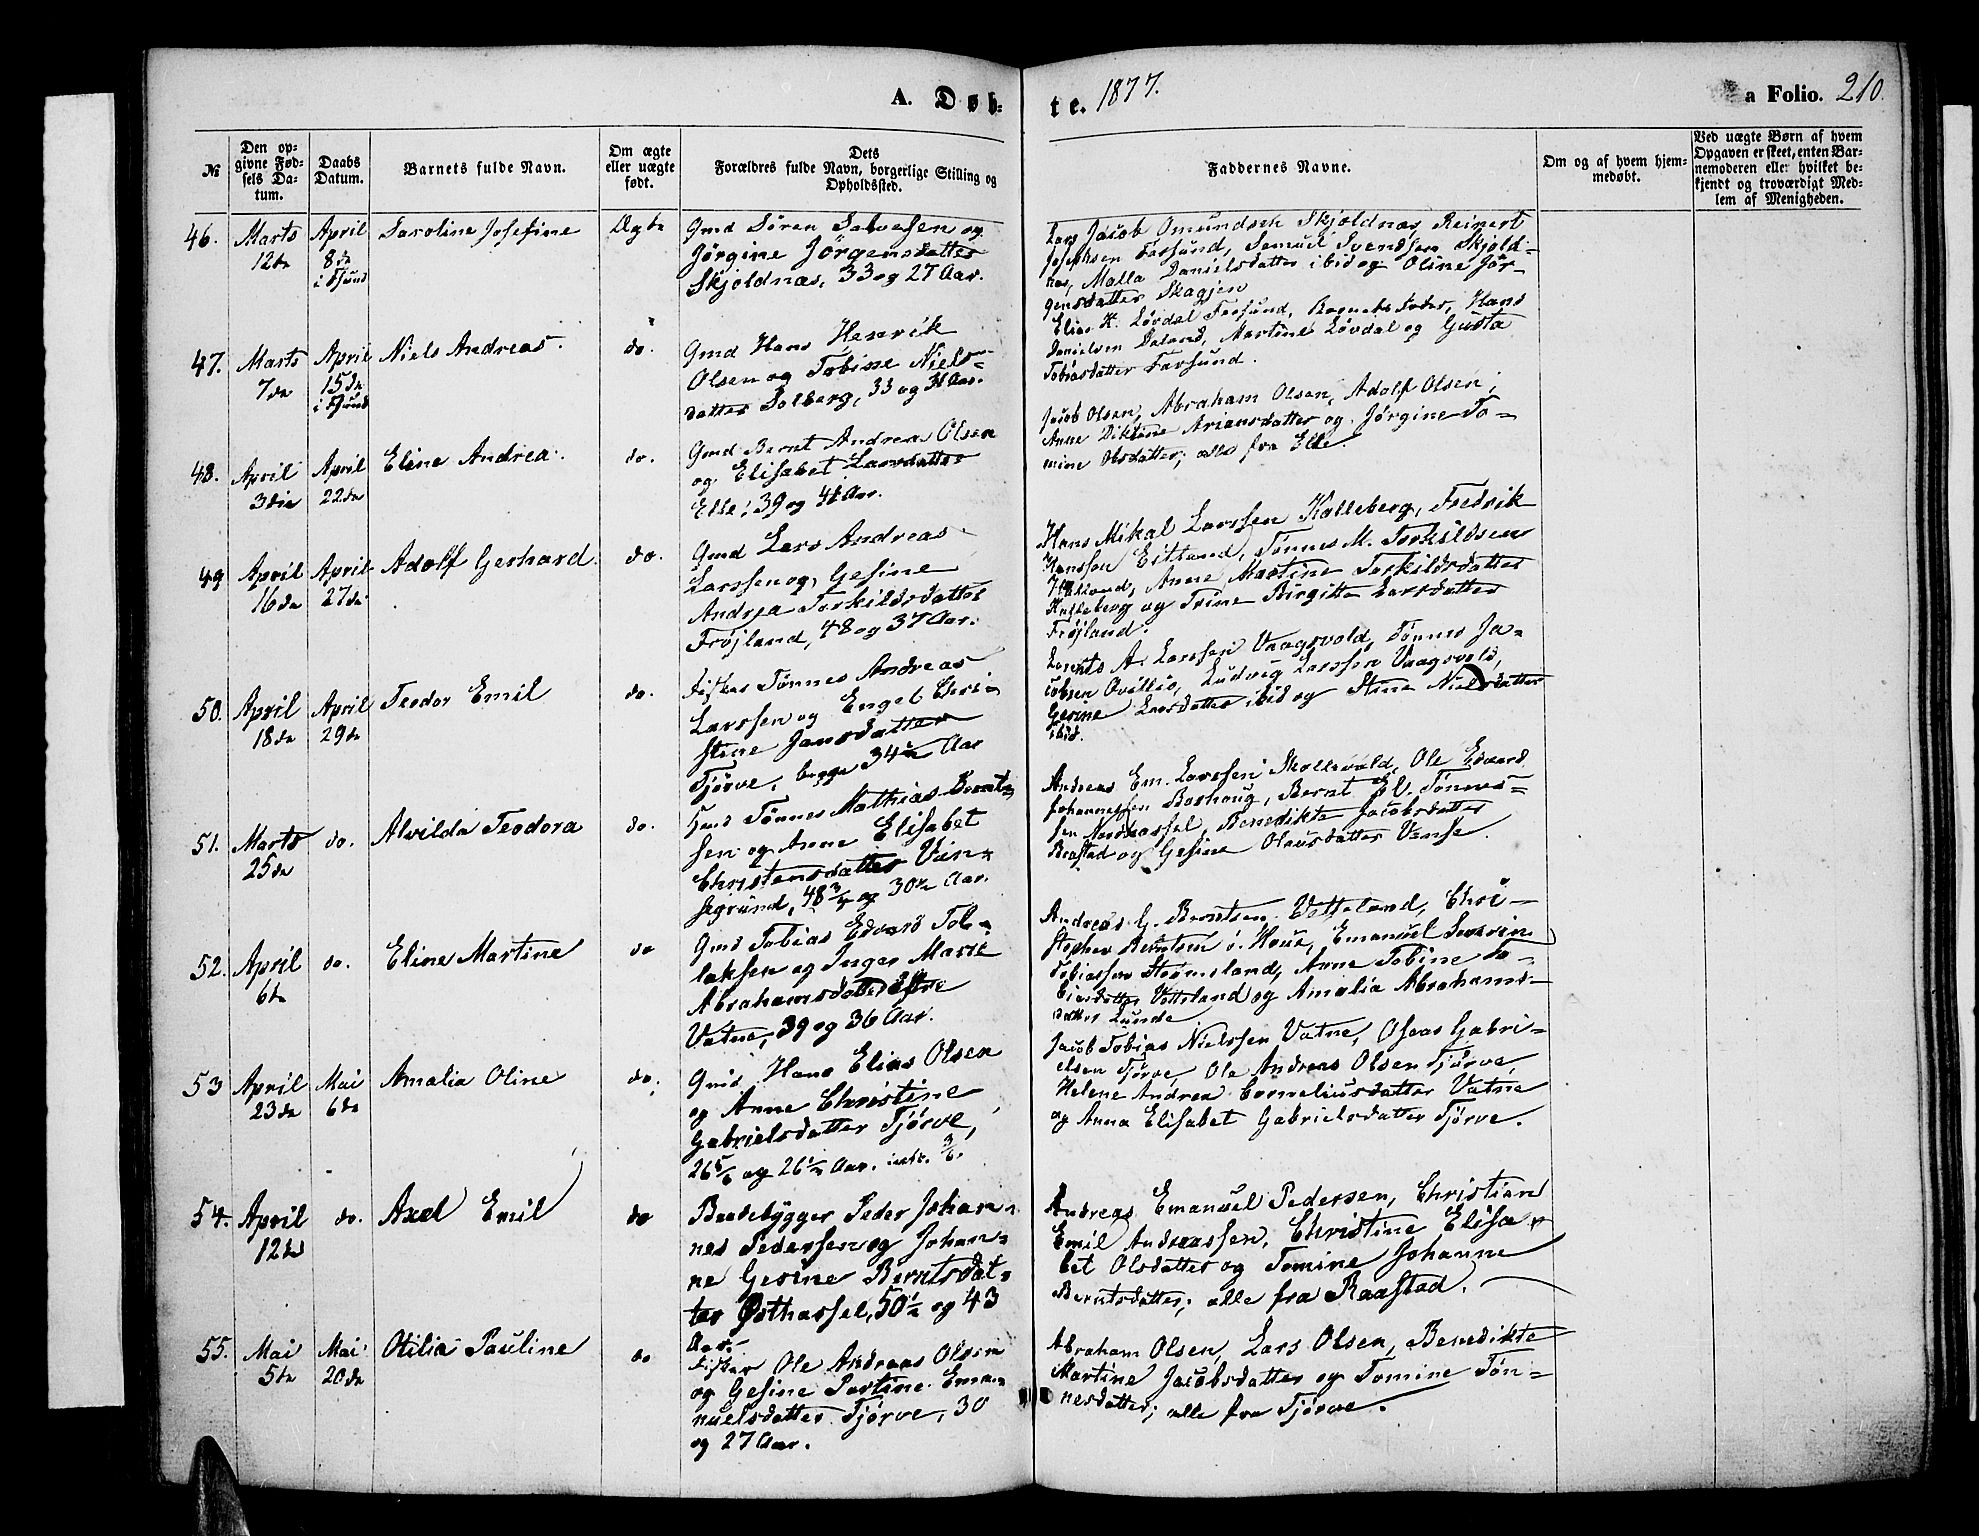 A. Døb-
te. 1877.
a Folio. 210.
№
Den op-
givne Fød-
sels Da-
tum.
Daabs
Datum.
Barnets fulde Navn.
Om ægte
eller uægte
født.
Dets
Forældres fulde Navn, borgerlige Stilling og
Opholdssted.
Faddernes Navne.
Om og af hvem hjem-
medøbt.
Ved uægte Børn af hvem
Opgaven er skeet, enten Bar-
nemoderen eller hvilket be-
kjendt og troværdigt Med-
lem af Menigheden.
46.
Marts
12te
April
8de
i Fsund
Caroline Josefine
Ægte
Gmd Sören Salvesen og
Jørgine Jörgensdatter
Skjoldnæs, 33 og 27 Aar.
Lars Jacob Omundsen Skjoldnæs, Reinert
Josephsen Farsund, Samuel Svendsen Skjold-
næs, Malla Danielsdatter ibid og Oline Jör-
gensdatter Skagjen
47.
Marts
7de
April
15de
i Fsund
Niels Andreas.
do.
Gmd Hans Henrik
Olsen og Tobine Niels-
datter Solberg, 33 og 31 Aar.
Elias K. Løvdal Farsund, Barnets Fader, Hans
Danielsen Daland, Martine Løvdal og Gusta
Tobiasdatter Farsund.
48.
April
3die
April
22de
Eline Andrea.
do.
Gmd Bernt Andreas Olsen
og Elisabet Larsdatter
Elle, 39 og 41 Aar.
Jacob Olsen, Abraham Olsen, Adolf Olsen,
Anne Diktine Ariansdatter og Jørgine To-
mine Olsdatter; alle fra Elle
49
April
16de
April
27de
Adolf Gerhard
do.
Gmd Lars Andreas
Larssen og Gesine
Andrea Torkildsdatter
Frøjland, 48 og 37 Aar.
Hans Mikal Larssen Kalleberg, Fredrik
Hanssen Eitland, Tønnes M. Torkildsen
Anne Martine Torkildsdatter
Kalleberg og Trine Birgitte Larsdatter
Frøjland.
50.
April
18de
April
29de
Teodor Emil
do.
Fisker Tønnes Andreas
Larssen og Engel Chri-
stine Jansdatter
Tjörve, begge 34½ Aar
Lorents A. Larssen Vaagsvold, Tönnes Ja-
cobsen Ludvig Larssen Vaagsvold,
Gesine Larsdatter ibid og Stine Nielsdatter
ibid.
51.
Marts
25de
do.
Alvilda Teodora
do.
Tønnes Mathias Bernt-
sen og Anne Elisabet
Christensdatter Van-
segrund, 48¾ og 30½ Aar.
Andreas Em. Larssen Skollevold, Ole Edvard
Johannessen Borhaug, Bernt El. Tønnes-
sen Nordhassel, Benedikte Jacobsdatter
Brastad og Gesine Olausdatter Vanse.
52.
April
6te
do.
Eline Martine
do
Gmd Tobias Edvard Tol-
laksen og Inger Marie
Abrahamsdatter Östre
Vatne, 39 og 36 Aar.
Andreas G. Berntsen Vetteland, Chri-
stopher Berntsen ö. Hous, Emanuel Severin
Tobiassen Strömsland, Anne Tobine To-
biasdatter Vetteland og Amalia Abrahams-
datter Lunde
53
April
23de
Mai
6te
Amalia Oline
do.
Gmd. Hans Elias Olsen
og Anne Christine
Gabrielsdatter Tjörve,
26 5/6 og 26½ Aar.
Jacob Tobias Nielssen Vatne, Osaas Gabri-
elsen Tjørve, Ole Andreas Olsen Tjørve,
Helene Andrea Corneliusdatter Vatne
og Anna Elisabet Gabrielsdatter Tjörve.
54.
April
12te
do.
Axel Emil
do
Baadebygger Peder Johan-
nes Pedersen og Johan-
ne Gesine Berntsdat-
ter Østhassel, 50½ og 43
Aar.
Andreas Emanuel Pedersen, Christian
Emil Andreassen, Christine Elisa-
bet Olsdatter og Tomine Johanne
Berntsdatter; alle fra Raastad.
55.
Mai
5te
Mai
20de
Otilia Pauline
do
Fisker Ole Andreas Olsen
og Gesine Partine Ema-
nuelsdatter Tjörve, 30
og 27 Aar.
Abraham Olsen, Lars Olsen, Benedikte
Martine Jacobsdatter og Tomine Tön-
nesdatter; alle fra Tjörve.